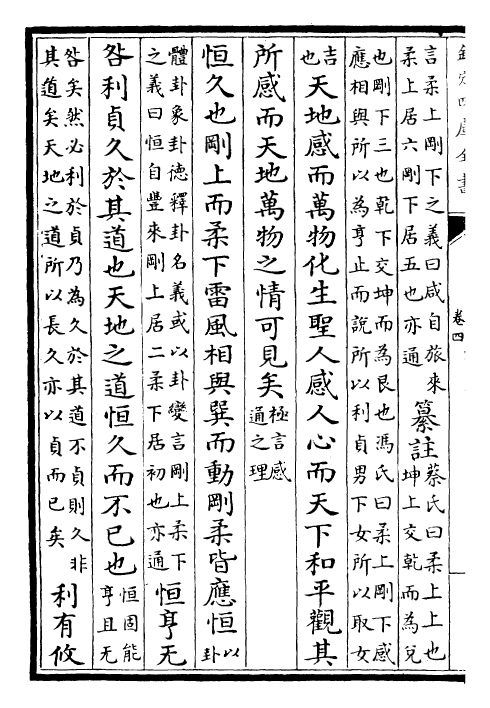 欽定四庫全書
卷四
言柔上剛下之義曰咸自旅來
柔上居六剛下居五也亦通
纂註
蔡氏曰柔上上也
坤上交乾而為兌
也剛下三也乾下交坤而為艮也馮氏曰柔上剛下感
應相與所以為亨止而說所以利貞男下女所以取女
吉
也
天地感而萬物化生聖人感人心而天下和平觀其
所感而天地萬物之情可見矣
極言感
通之理
恒久也剛上而柔下雷風相與巽而動剛柔皆應恒
以
卦
體卦象卦德釋卦名義或以卦變言剛上柔下
之義曰恒自豐來剛上居二柔下居初也亦通
恒亨无
咎利貞久於其道也天地之道恒久而不已也
恒固能
亨且无
咎矣然必利於貞乃為久於其道不貞則久非
其道矣天地之道所以長久亦以貞而已矣
利有攸